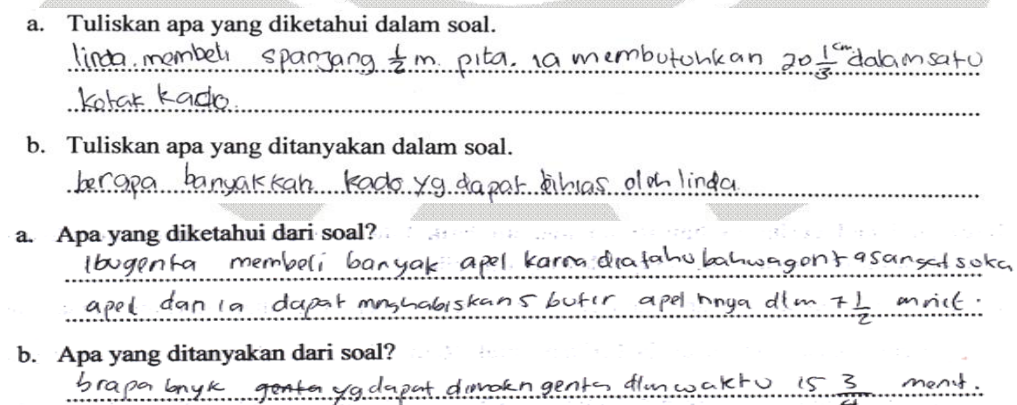 a. Tuliskan apa yang diketahui dalam soal.
linda membeli spanjang 1/2 m pita. ia membutuhkan 20 1/3 cm dalam satu
kotak kado.
b. Tuliskan apa yang ditanyakan dalam soal.
berapa banyakkah kado yg dapat dihias oleh linda
a. Apa yang diketahui dari soal?
Ibu genta membeli banyak apel karna dia tahu bahwa genta sangat suka
apel dan ia dapat mnghabiskan 5 butir apel hnya dlm 7 1/2 mnit.
b. Apa yang ditanyakan dari soal?
brapa bnyk genta yg dapat dimakn genta dlm waktu 15 3/4 menit.